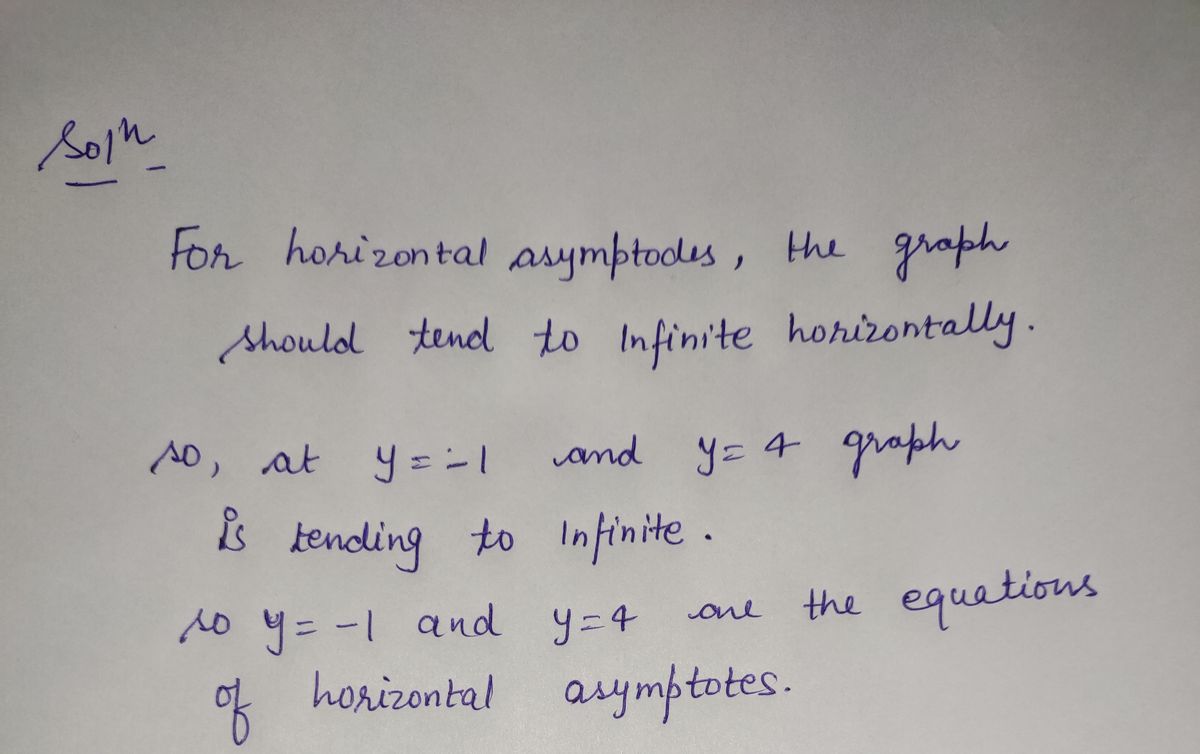 Solⁿ
For horizontal asymptodes, the graph
should tend to Infinite horizontally.
so, at y = -1 and y = 4 graph
is tending to Infinite.
so y = -1 and y = 4 are the equations
of horizontal asymptotes.